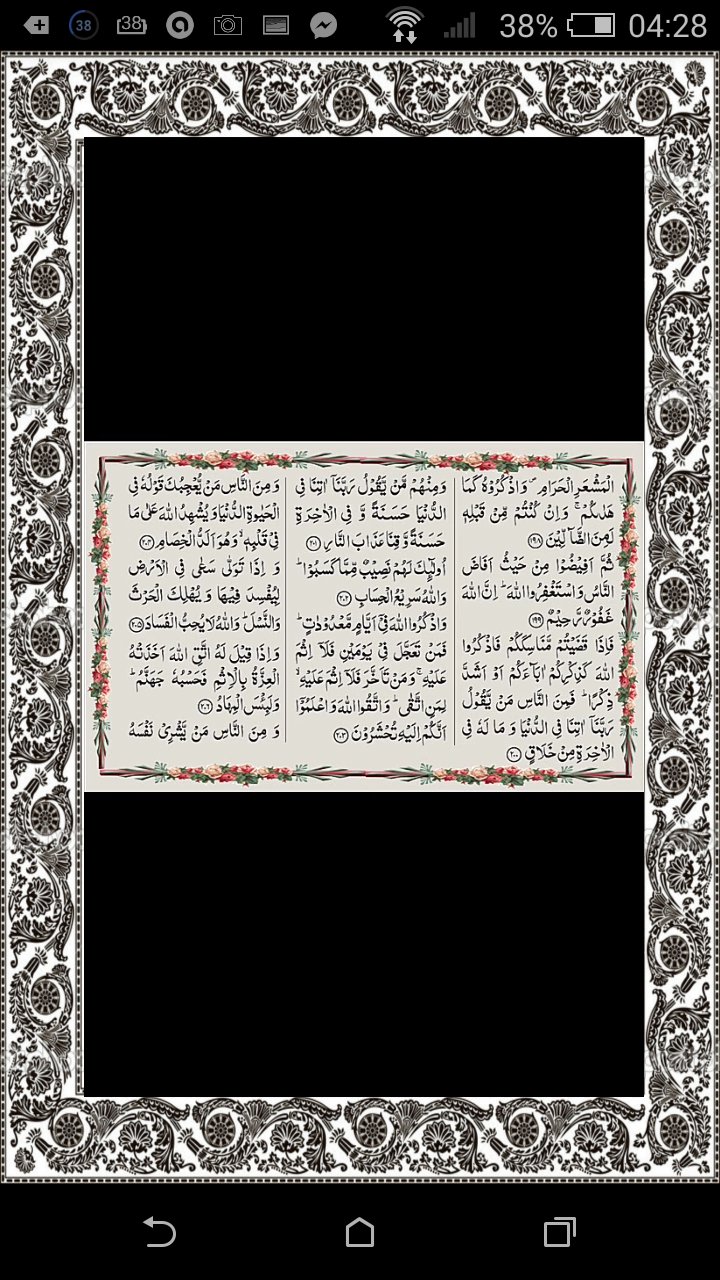 38
38
38%
04:28
الْمَشْعَرِ الْحَرَامِ ۪ وَاذْكُرُوْهُ كَمَا
هَدٰىكُمْ ۚ وَاِنْ كُنْتُمْ مِّنْ قَبْلِهٖ
لَمِنَ الضَّآلِّيْنَ ﴿۱۹۸﴾
ثُمَّ اَفِيْضُوْا مِنْ حَيْثُ اَفَاضَ
النَّاسُ وَاسْتَغْفِرُوا اللهَ ؕ اِنَّ اللهَ
غَفُوْرٌ رَّحِيْمٌ ﴿۱۹۹﴾
فَاِذَا قَضَيْتُمْ مَّنَاسِكَكُمْ فَاذْكُرُوا
اللهَ كَذِكْرِكُمْ اٰبَآءَكُمْ اَوْ اَشَدَّ
ذِكْرًا ؕ فَمِنَ النَّاسِ مَنْ يَّقُوْلُ
رَبَّنَاۤ اٰتِنَا فِى الدُّنْيَا وَ مَا لَهٗ فِى
الْاٰخِرَةِ مِنْ خَلَاقٍ ﴿۲۰۰﴾
وَمِنْهُمْ مَّنْ يَّقُوْلُ رَبَّنَاۤ اٰتِنَا فِى
الدُّنْيَا حَسَنَةً وَّ فِى الْاٰخِرَةِ
حَسَنَةً وَّ قِنَا عَذَابَ النَّارِ ﴿۲۰۱﴾
اُولٰٓئِكَ لَهُمْ نَصِيْبٌ مِّمَّا كَسَبُوْا ؕ
وَاللهُ سَرِيْعُ الْحِسَابِ ﴿۲۰۲﴾
وَاذْكُرُوا اللهَ فِىْۤ اَيَّامٍ مَّعْدُوْدٰتٍ ؕ
فَمَنْ تَعَجَّلَ فِىْ يَوْمَيْنِ فَلَاۤ اِثْمَ
عَلَيْهِ ۚ وَمَنْ تَاَخَّرَ فَلَاۤ اِثْمَ عَلَيْهِ ۙ
لِمَنِ اتَّقٰى ؕ وَاتَّقُوا اللهَ وَاعْلَمُوْۤا
اَنَّكُمْ اِلَيْهِ تُحْشَرُوْنَ ﴿۲۰۳﴾
وَمِنَ النَّاسِ مَنْ يُّعْجِبُكَ قَوْلُهٗ فِى
الْحَيٰوةِ الدُّنْيَا وَ يُشْهِدُ اللهَ عَلٰى مَا
فِىْ قَلْبِهٖ ۙ وَهُوَ اَلَدُّ الْخِصَامِ ﴿۲۰۴﴾
وَ اِذَا تَوَلّٰى سَعٰى فِى الْاَرْضِ
لِيُفْسِدَ فِيْهَا وَ يُهْلِكَ الْحَرْثَ
وَالنَّسْلَ ؕ وَاللهُ لَا يُحِبُّ الْفَسَادَ ﴿۲۰۵﴾
وَاِذَا قِيْلَ لَهُ اتَّقِ اللهَ اَخَذَتْهُ
الْعِزَّةُ بِالْاِثْمِ فَحَسْبُهٗ جَهَنَّمُ ؕ
وَلَبِئْسَ الْمِهَادُ ﴿۲۰۶﴾
وَ مِنَ النَّاسِ مَنْ يَّشْرِىْ نَفْسَهُ